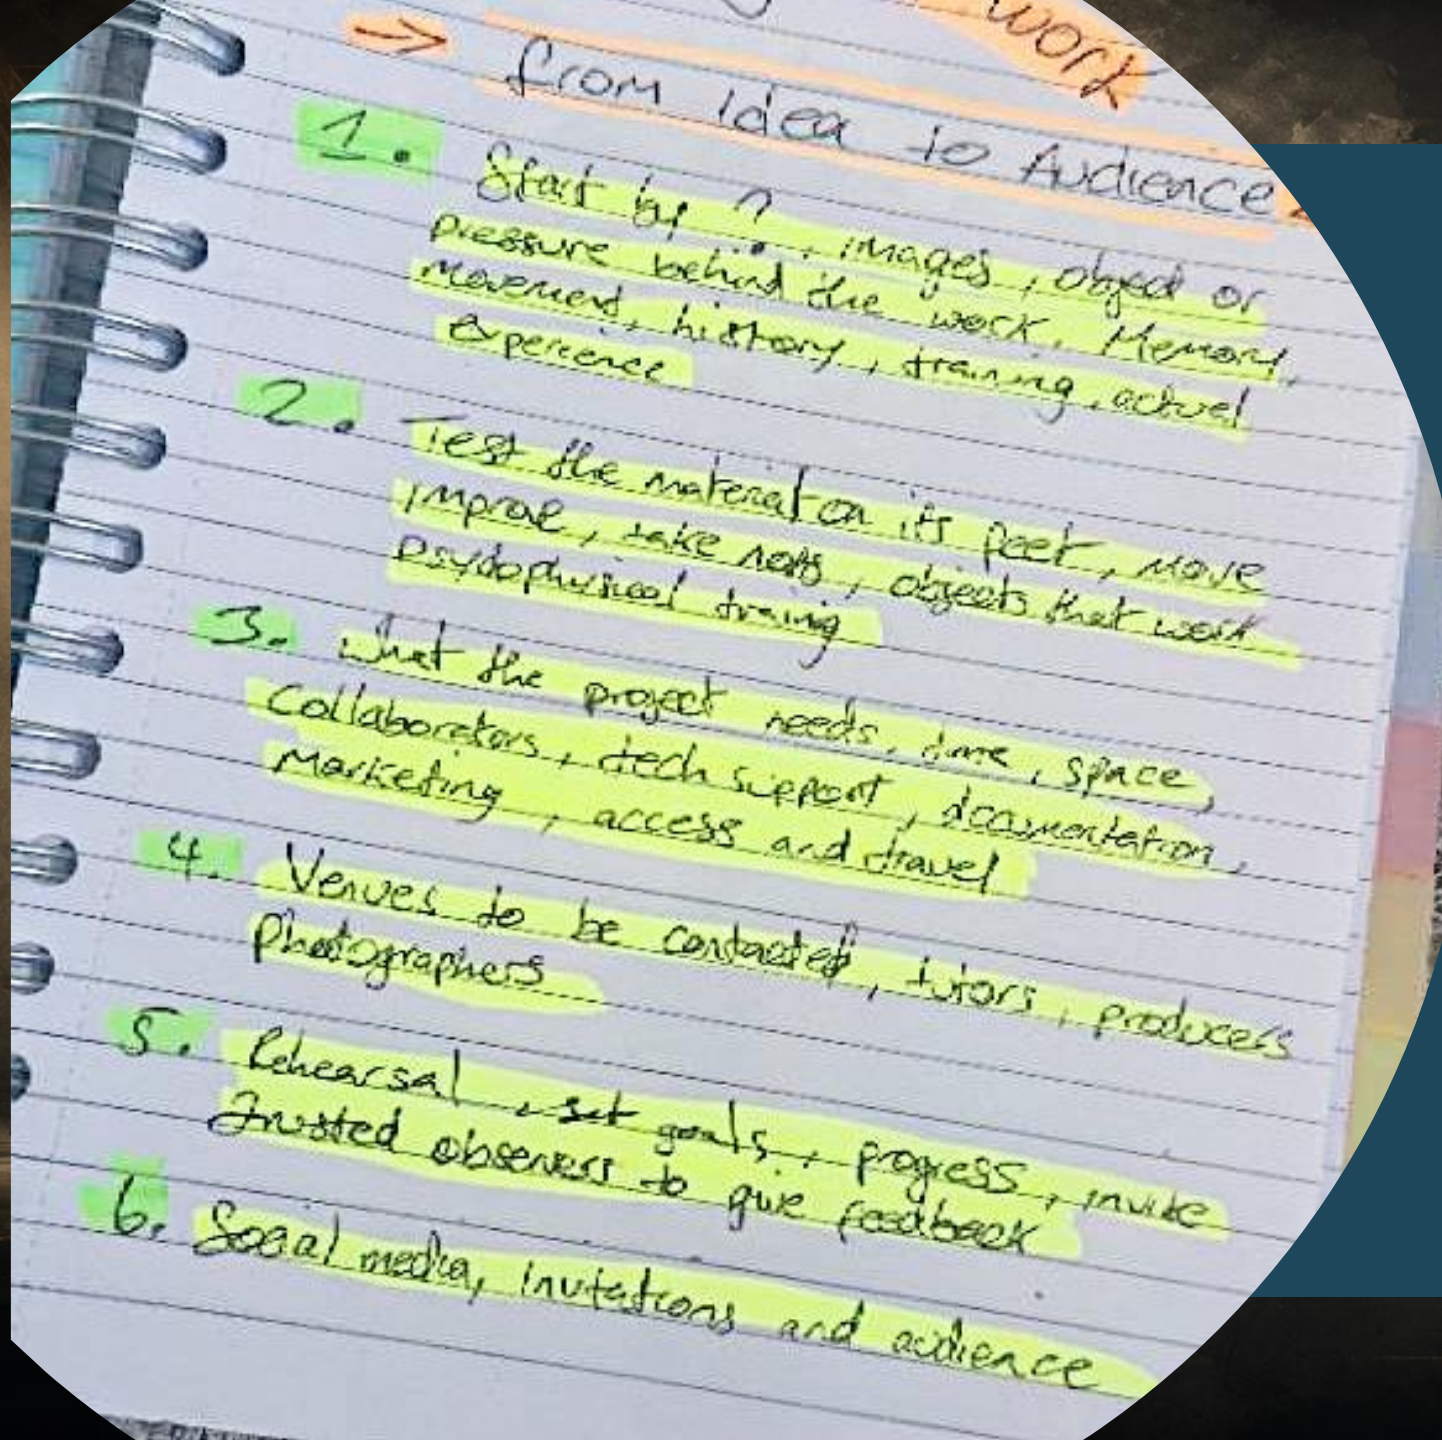 work
→ from idea to Audience
1. Start by ?, images, object or
pressure behind the work. Memory,
movement, history, training, actuel
experience
2. Test the material on its feet, move
improve, take nots, objects that work
psydophysical training
3. What the project needs, time, space,
Collaborators, tech support, documentation,
Marketing, access and travel
4. Venues to be contacted, tutors, producers
Photographers
5. Rehearsal, set goals, progress, invite
trusted observers to give feedback
6. Social media, invitations and audience